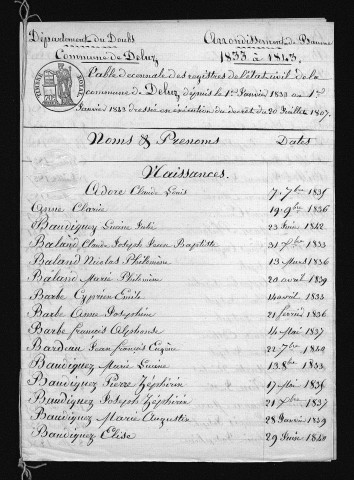 Département du Doubs
Arrondissement de Baume
Commune de Deluz
1833 à 1843,
TIMBRE ROYAL
Table décennale des registres de l'état civil de la
commune de Deluz, depuis le 1er Janvier 1833 au 1er
Janvier 1843 dressée en exécution du décret du 20 Juillet 1807.
Noms & Prénoms Dates
Naissances.
Adore Claude Louis 7. 7bre 1835
Anne Clarie 19. 9bre 1836
Baudiquez Lucine Julie 23 Juin 1842
Baland Claude Joseph Jean Baptiste 31 Xbre 1833
Baland Nicolas Philémon 13 Mars 1836
Baland Marie Philomène 20 avril 1839
Barbe Cyprien Emile 14 avril 1833
Barbe Anne Joséphine 21 février 1836
Barbe françois Alphonse 14 Mai 1837
Bardeau Jean françois Eugène 22 7bre 1840
Baudiquez Marie Lucine 13. 8bre 1833
Baudiquez Pierre Zéphirin 17 Mai 1835
Baudiquez Joseph Zéphirin 21 Xbre 1837
Baudiquez Marie Augustin 28 Janvier 1839
Baudiquez Elise 29 Juin 1840